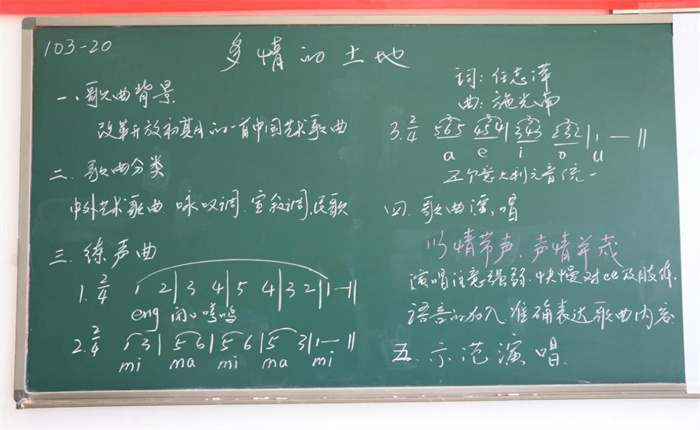 103-20
多情的土地
词：任志萍
曲：施光南
一、歌曲背景
改革开放初期的一首中国艺术歌曲
二、歌曲分类
中外艺术歌曲、咏叹调、宣叙调、民歌
三、练声曲
1. 2/4 1 2|3 4|5 4|3 2|1—||
eng 闭口哼鸣
2. 2/4 1 3|5 6|5 6|5 3|1—||
mi ma mi ma mi
3. 2/4 565 454|343 232|1 —||
a e i o u
五个意大利元音统一
四、歌曲演唱
以情带声、声情并茂
演唱注意强弱、快慢对比及肢体
语言的加入、准确表达歌曲内容
五、示范演唱